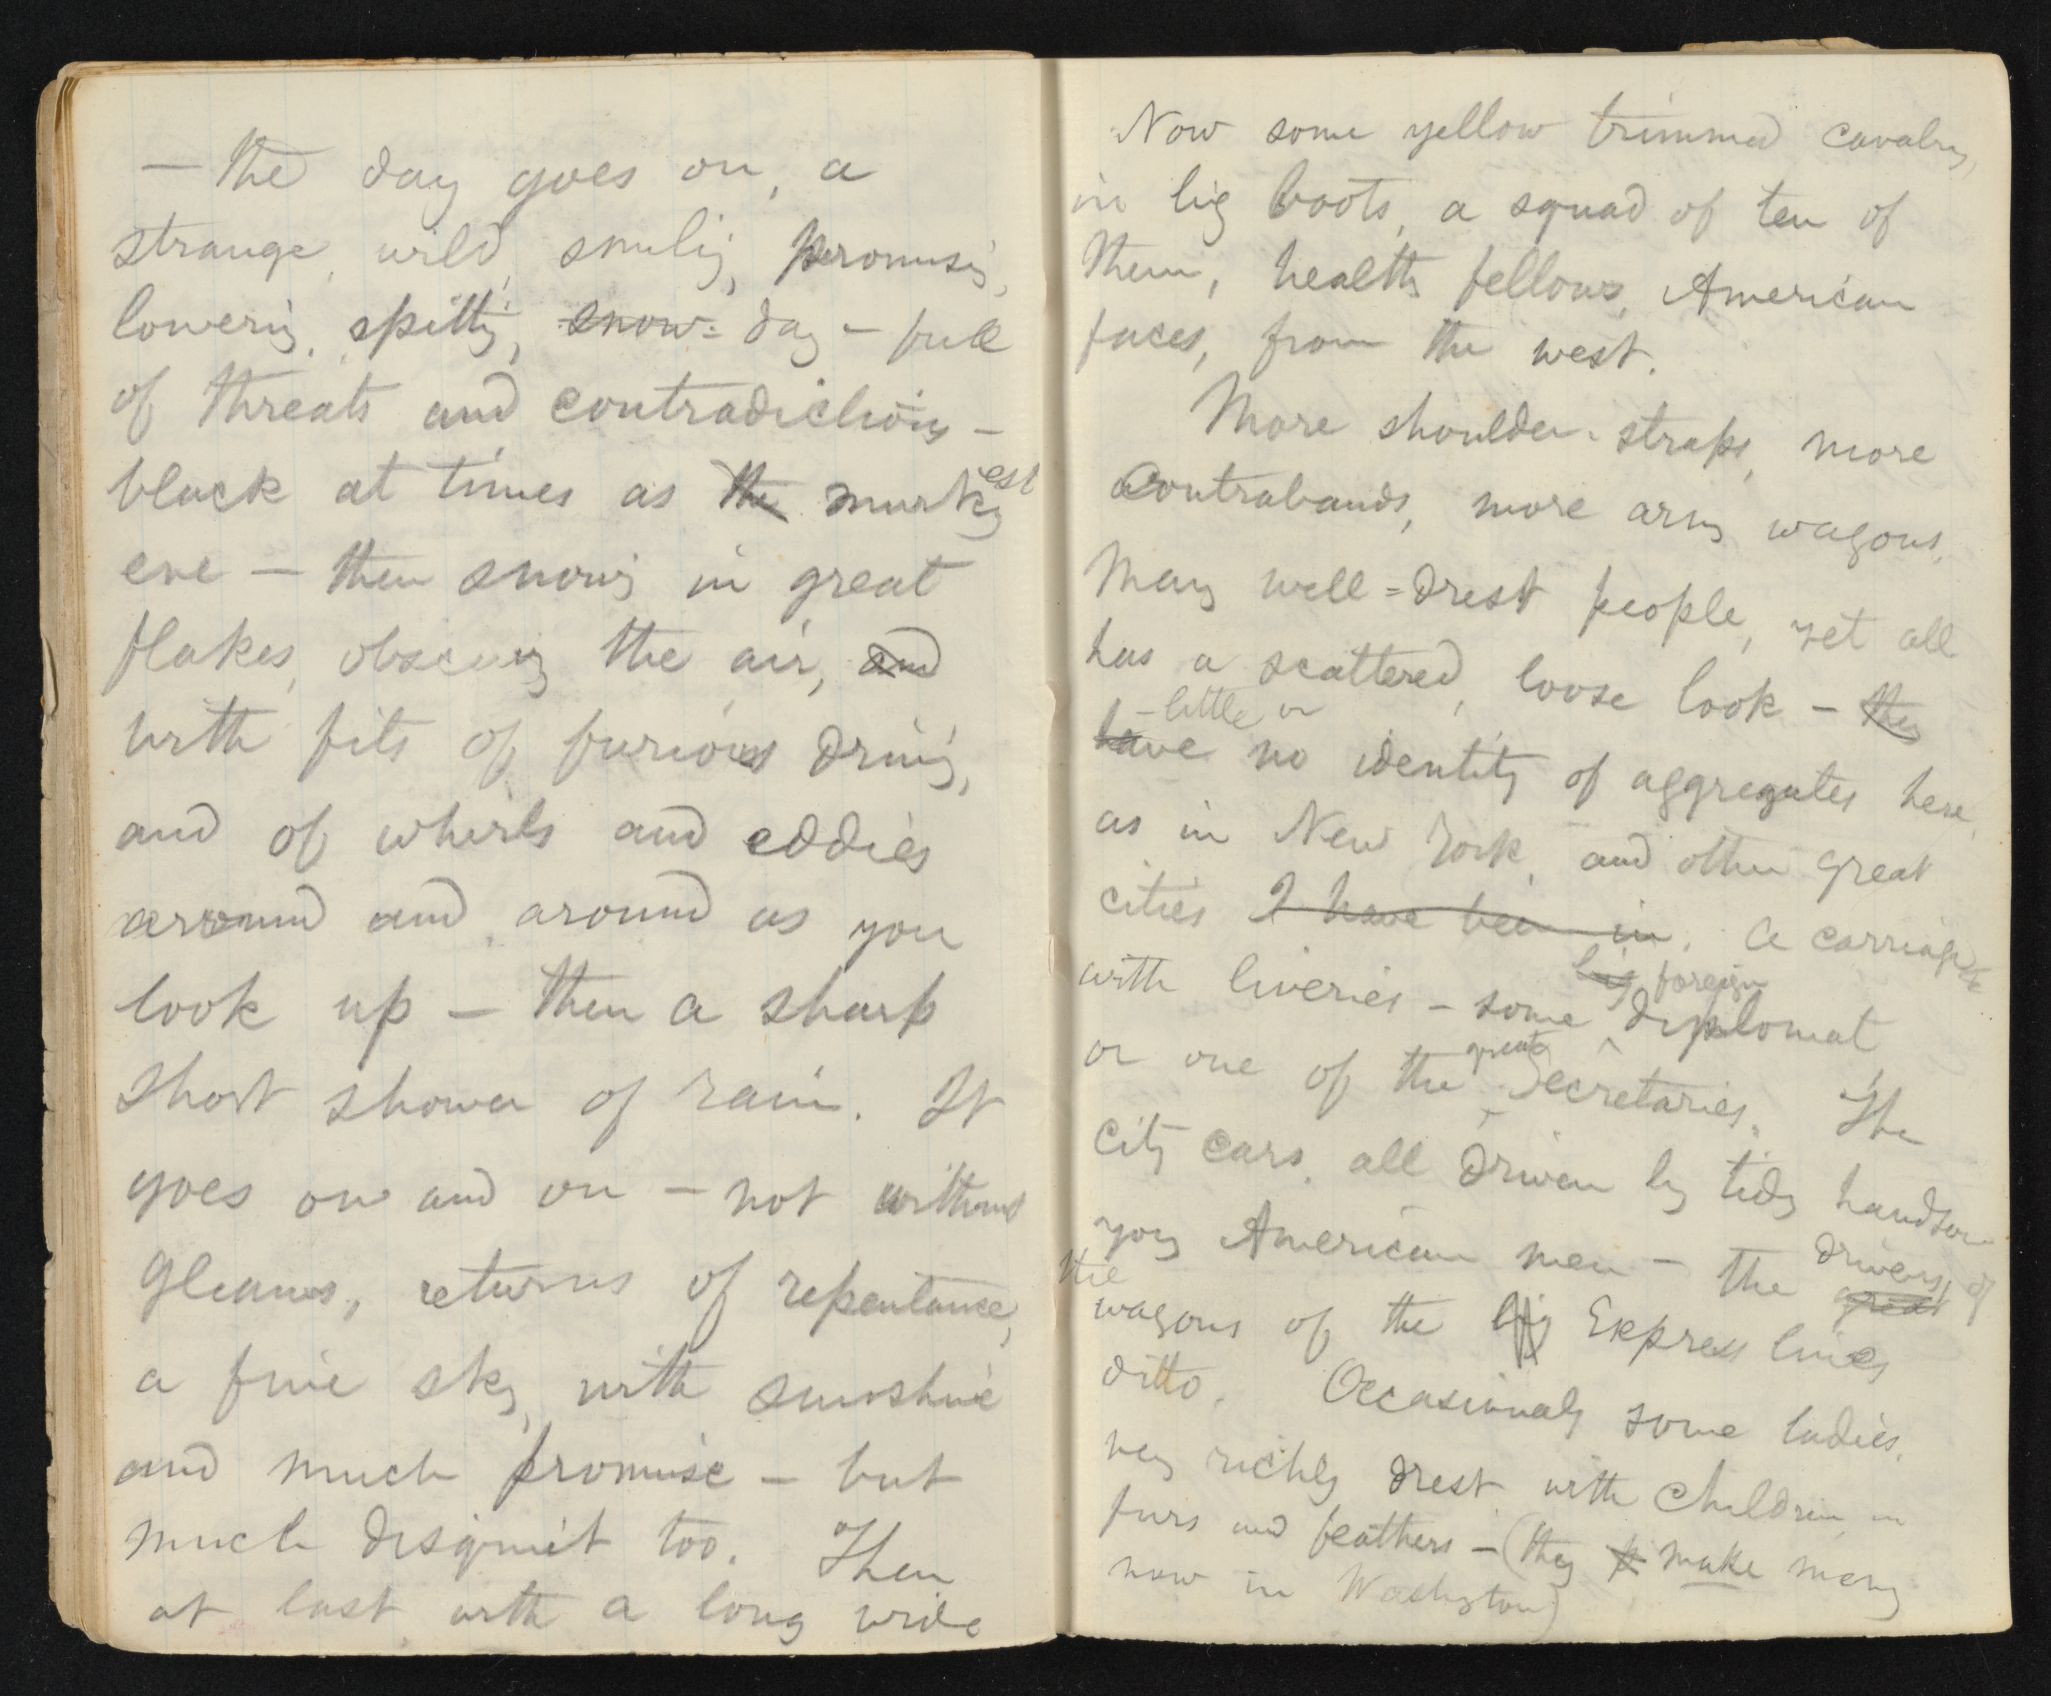 — the day goes on, a
strange, wild, smiling, promising,
lowering, spitting, snow- day — full
of threats and contradictions —
black at times as the murkyest
eve — then snowing in great
flakes, obscuring the air, and
with fits of furious driving,
and of whirls and eddies
around and around as you
look up — then a sharp
short shower of rain. It
goes on and on — not without
gleams, returns of repentance,
a fine sky, with sunshine
and much promise — but
much disquiet too. Then
at last, with a long wide
Now some yellow trimmed cavalry,
in big boots, a squad of ten of
them, healthy fellows, American
faces, from the west.
More shoulder-straps, more
contrabands, more army wagons.
Many well=drest people, yet all
has a scattered, loose look — they
— little or
have no identity of aggregates here,
as in New York, and other great
cities I have been in. A carriage
big foreign
with liveries — some diplomat
great
or one of the Secretaries. The
city cars, all driven by tidy handsome
young American men — the great
drivers, of
the
wagons of the big Express lines
ditto. Occasionally some ladies,
very richly drest, with children, in
furs and feathers — (they make many
now in Washington)